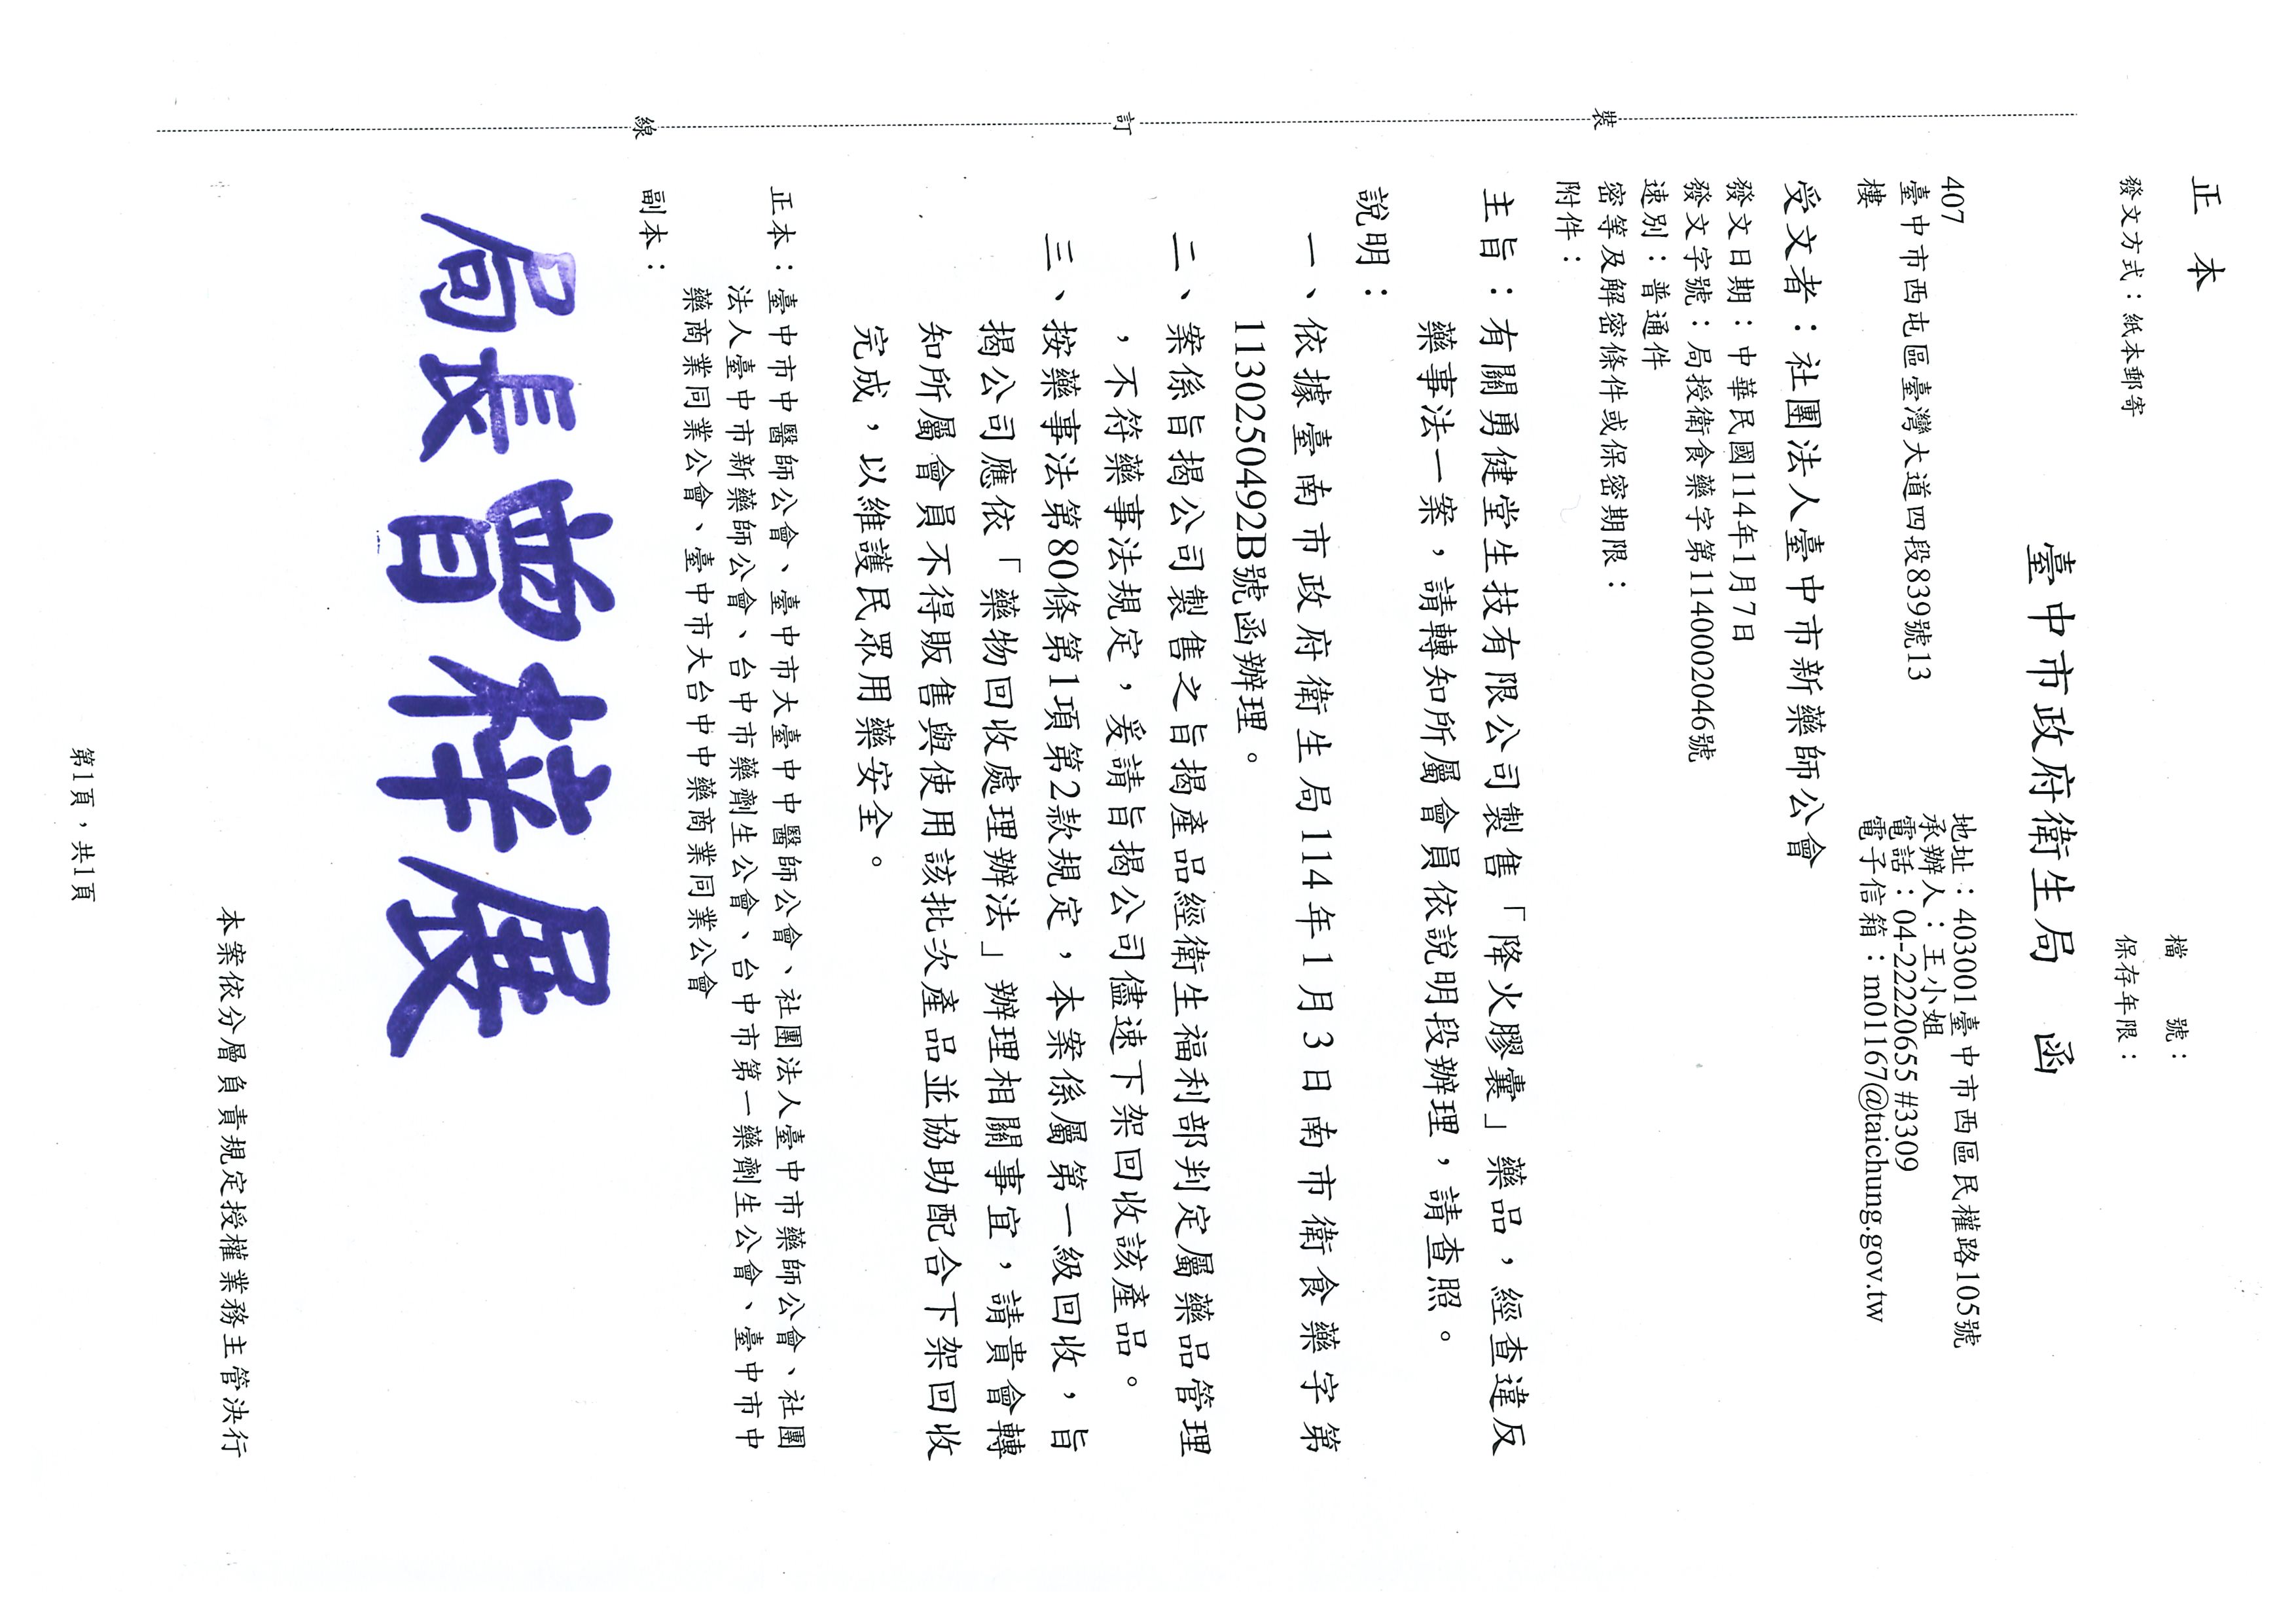 正本
檔　　號：
保存年限：
發文方式：紙本郵寄
臺中市政府衛生局　函
地址：403001臺中市西區民權路105號
承辦人：王小姐
電話：04-22220655 #3309
電子信箱：m01167@taichung.gov.tw
407
臺中市西屯區臺灣大道四段839號13
樓
受文者：社團法人臺中市新藥師公會
發文日期：中華民國114年1月7日
發文字號：局授衛食藥字第1140002046號
速別：普通件
密等及解密條件或保密期限：
附件：
主旨：有關勇健堂生技有限公司製售「降火膠囊」藥品，經查違反
藥事法一案，請轉知所屬會員依說明段辦理，請查照。
說明：
一、依據臺南市政府衛生局114年1月3日南市衛食藥字第
1130250492B號函辦理。
二、案係旨揭公司製售之旨揭產品經衛生福利部判定屬藥品管理
，不符藥事法規定，爰請旨揭公司儘速下架回收該產品。
三、按藥事法第80條第1項第2款規定，本案係屬第一級回收，旨
揭公司應依「藥物回收處理辦法」辦理相關事宜，請貴會轉
知所屬會員不得販售與使用該批次產品並協助配合下架回收
完成，以維護民眾用藥安全。
正本：臺中市中醫師公會、臺中市大臺中中醫師公會、社團法人臺中市藥師公會、社團
法人臺中市新藥師公會、台中市藥劑生公會、台中市第一藥劑生公會、臺中市中
藥商業同業公會、臺中市大台中中藥商業同業公會
副本：
局長曾梓展
本案依分層負責規定授權業務主管決行
第1頁，共1頁
裝
訂
線